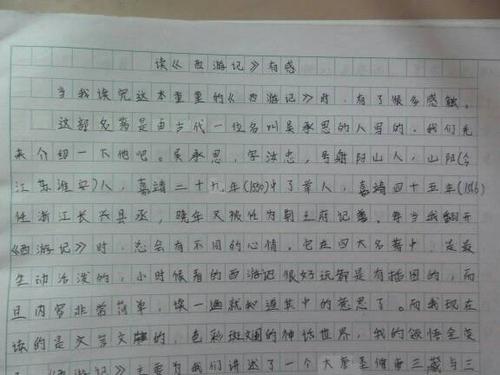 读《西游记》有感
当我读完这本重重的《西游记》时,有了很多感触。
这部名著是由古代一位名叫吴承恩的人写的,我们先
来介绍一下他吧。吴承恩,字汝忠,号射阳山人,山阳(今
江苏淮安)人,嘉靖二十九年(1550)中了举人,嘉靖四十五年(1566)
任浙江长兴县丞,晚年又被任为荆王府记善。每当我翻开
《西游记》时,总会有不同的心情。它在四大名著中,是最
生动活泼的,小时候看的西游记很好玩都是有插图的,而
且内容非常简单,读一遍就知道其中的意思了。而我现在
读的是文言文的,色彩斑斓的神话世界,我的领悟全变
了。《西游记》主要为我们讲述了一个大唐圣僧唐三藏与三